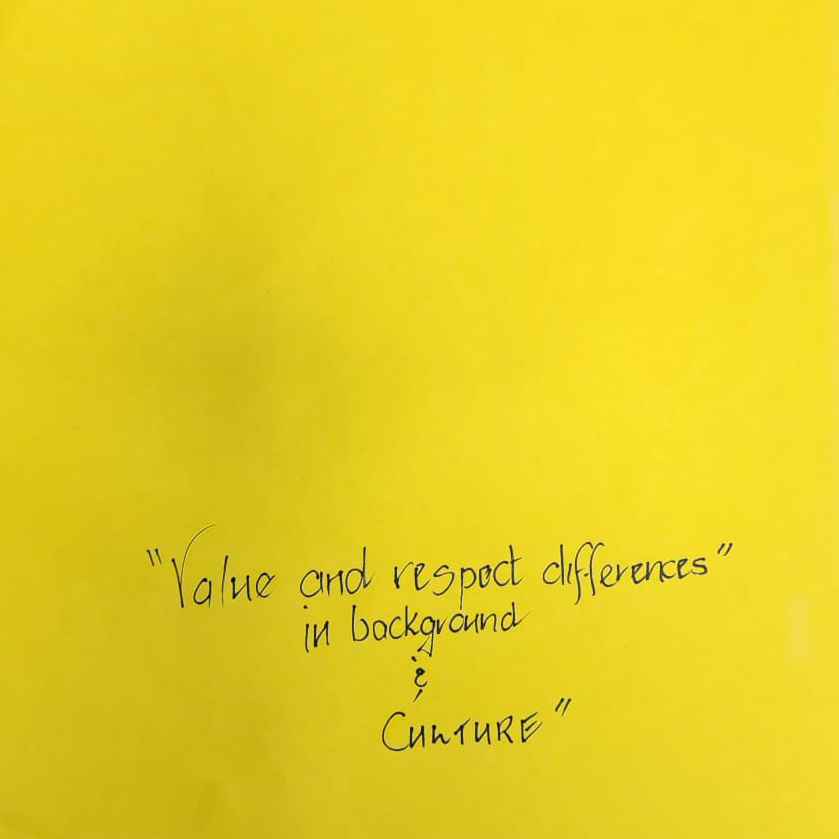 "Value and respect differences"
in background
&
CULTURE"